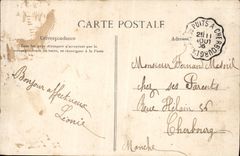 CARTE POSTALE
Correspondance
CHERBOURG
25 11
AOUT
Bonjour affectueux
Léonie
Monsieur Fernand Mesnil
chez ses Parents
Rue Hélain 56
Cherbourg
Manche